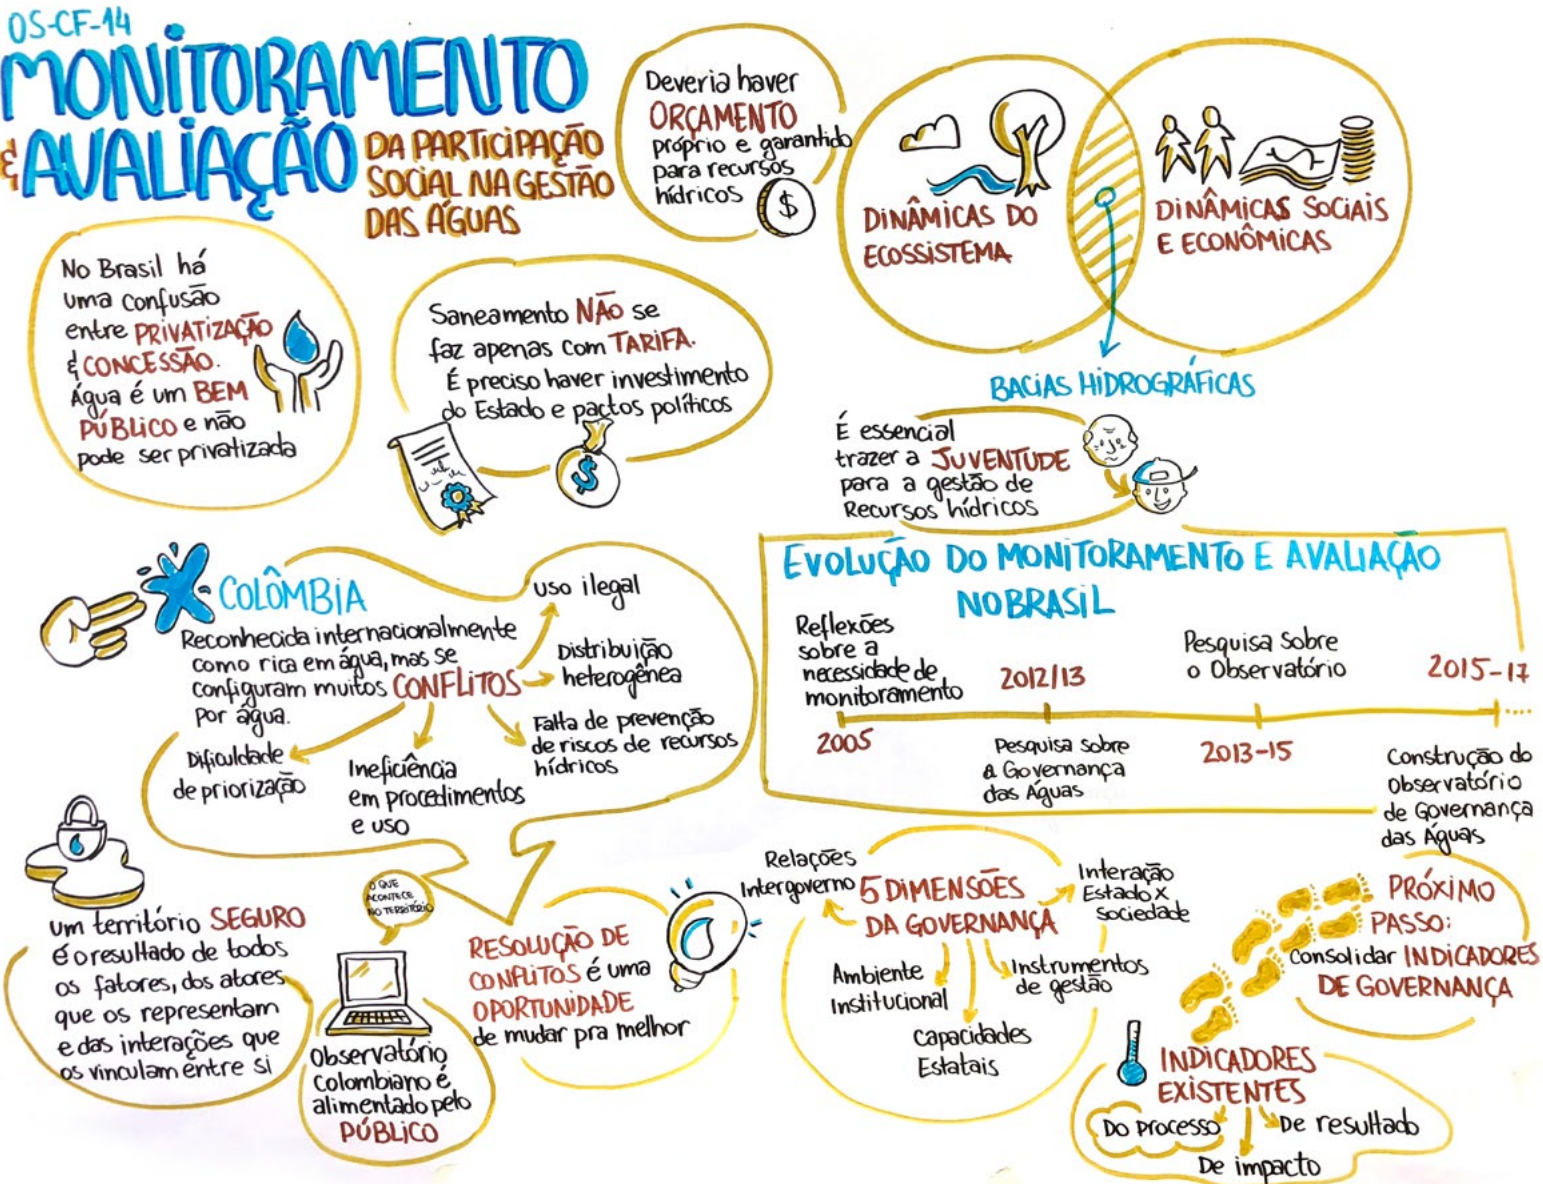 OS-CF-14
MONITORAMENTO
& AVALIAÇÃO
DA PARTICIPAÇÃO
SOCIAL NA GESTÃO
DAS ÁGUAS
Deveria haver
ORÇAMENTO
próprio e garantido
para recursos
hídricos
$
DINÂMICAS DO
ECOSSISTEMA
DINÂMICAS SOCIAIS
E ECONÔMICAS
BACIAS HIDROGRÁFICAS
No Brasil há
uma confusão
entre PRIVATIZAÇÃO
& CONCESSÃO.
Água é um BEM
PÚBLICO e não
pode ser privatizada
Saneamento NÃO se
faz apenas com TARIFA.
É preciso haver investimento
do Estado e pactos políticos
$
É essencial
trazer a JUVENTUDE
para a gestão de
Recursos hídricos
COLÔMBIA
Reconhecida internacionalmente
como rica em água, mas se
configuram muitos CONFLITOS
por água.
uso ilegal
Distribuição
heterogênea
Falta de prevenção
de riscos de recursos
hídricos
Ineficiência
em procedimentos
e uso
Dificuldade
de priorização
EVOLUÇÃO DO MONITORAMENTO E AVALIAÇÃO
NO BRASIL
Reflexões
sobre a
necessidade de
monitoramento
2005
2012/13
Pesquisa sobre
a Governança
das Águas
Pesquisa sobre
o Observatório
2013-15
2015-17
Construção do
Observatório
de Governança
das Águas
um território SEGURO
é o resultado de todos
os fatores, dos atores
que os representam
e das interações que
os vinculam entre si
O QUE
ACONTECE
NO TERRITÓRIO
Observatório
Colombiano é
alimentado pelo
PÚBLICO
RESOLUÇÃO DE
CONFLITOS é uma
OPORTUNIDADE
de mudar pra melhor
5 DIMENSÕES
DA GOVERNANÇA
Relações
Intergoverno
Interação
Estado x
Sociedade
Ambiente
Institucional
Instrumentos
de gestão
Capacidades
Estatais
PRÓXIMO
PASSO:
Consolidar INDICADORES
DE GOVERNANÇA
INDICADORES
EXISTENTES
Do Processo
De resultado
De impacto